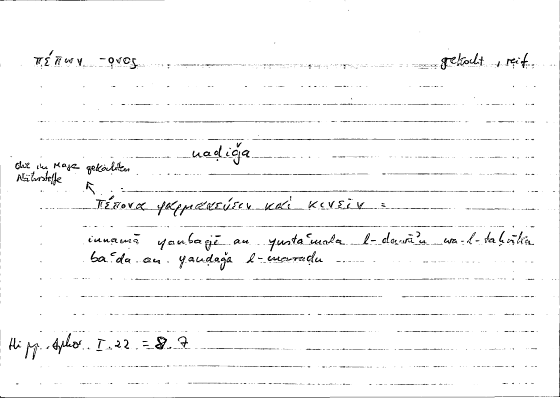 πέπων -ονος gekocht, reif
naḍiǧa
die im Mage gekochten
Nährstoffe
πέπονα φαρμακεύειν καὶ κινεῖν =
innamā yanbaġī an yustaʿmala l-dawāʾu wa-l-taḥrīku
baʿda an yanḍaǧa l-maraḍu
Hipp. Aphor. I 22 = 8. 7